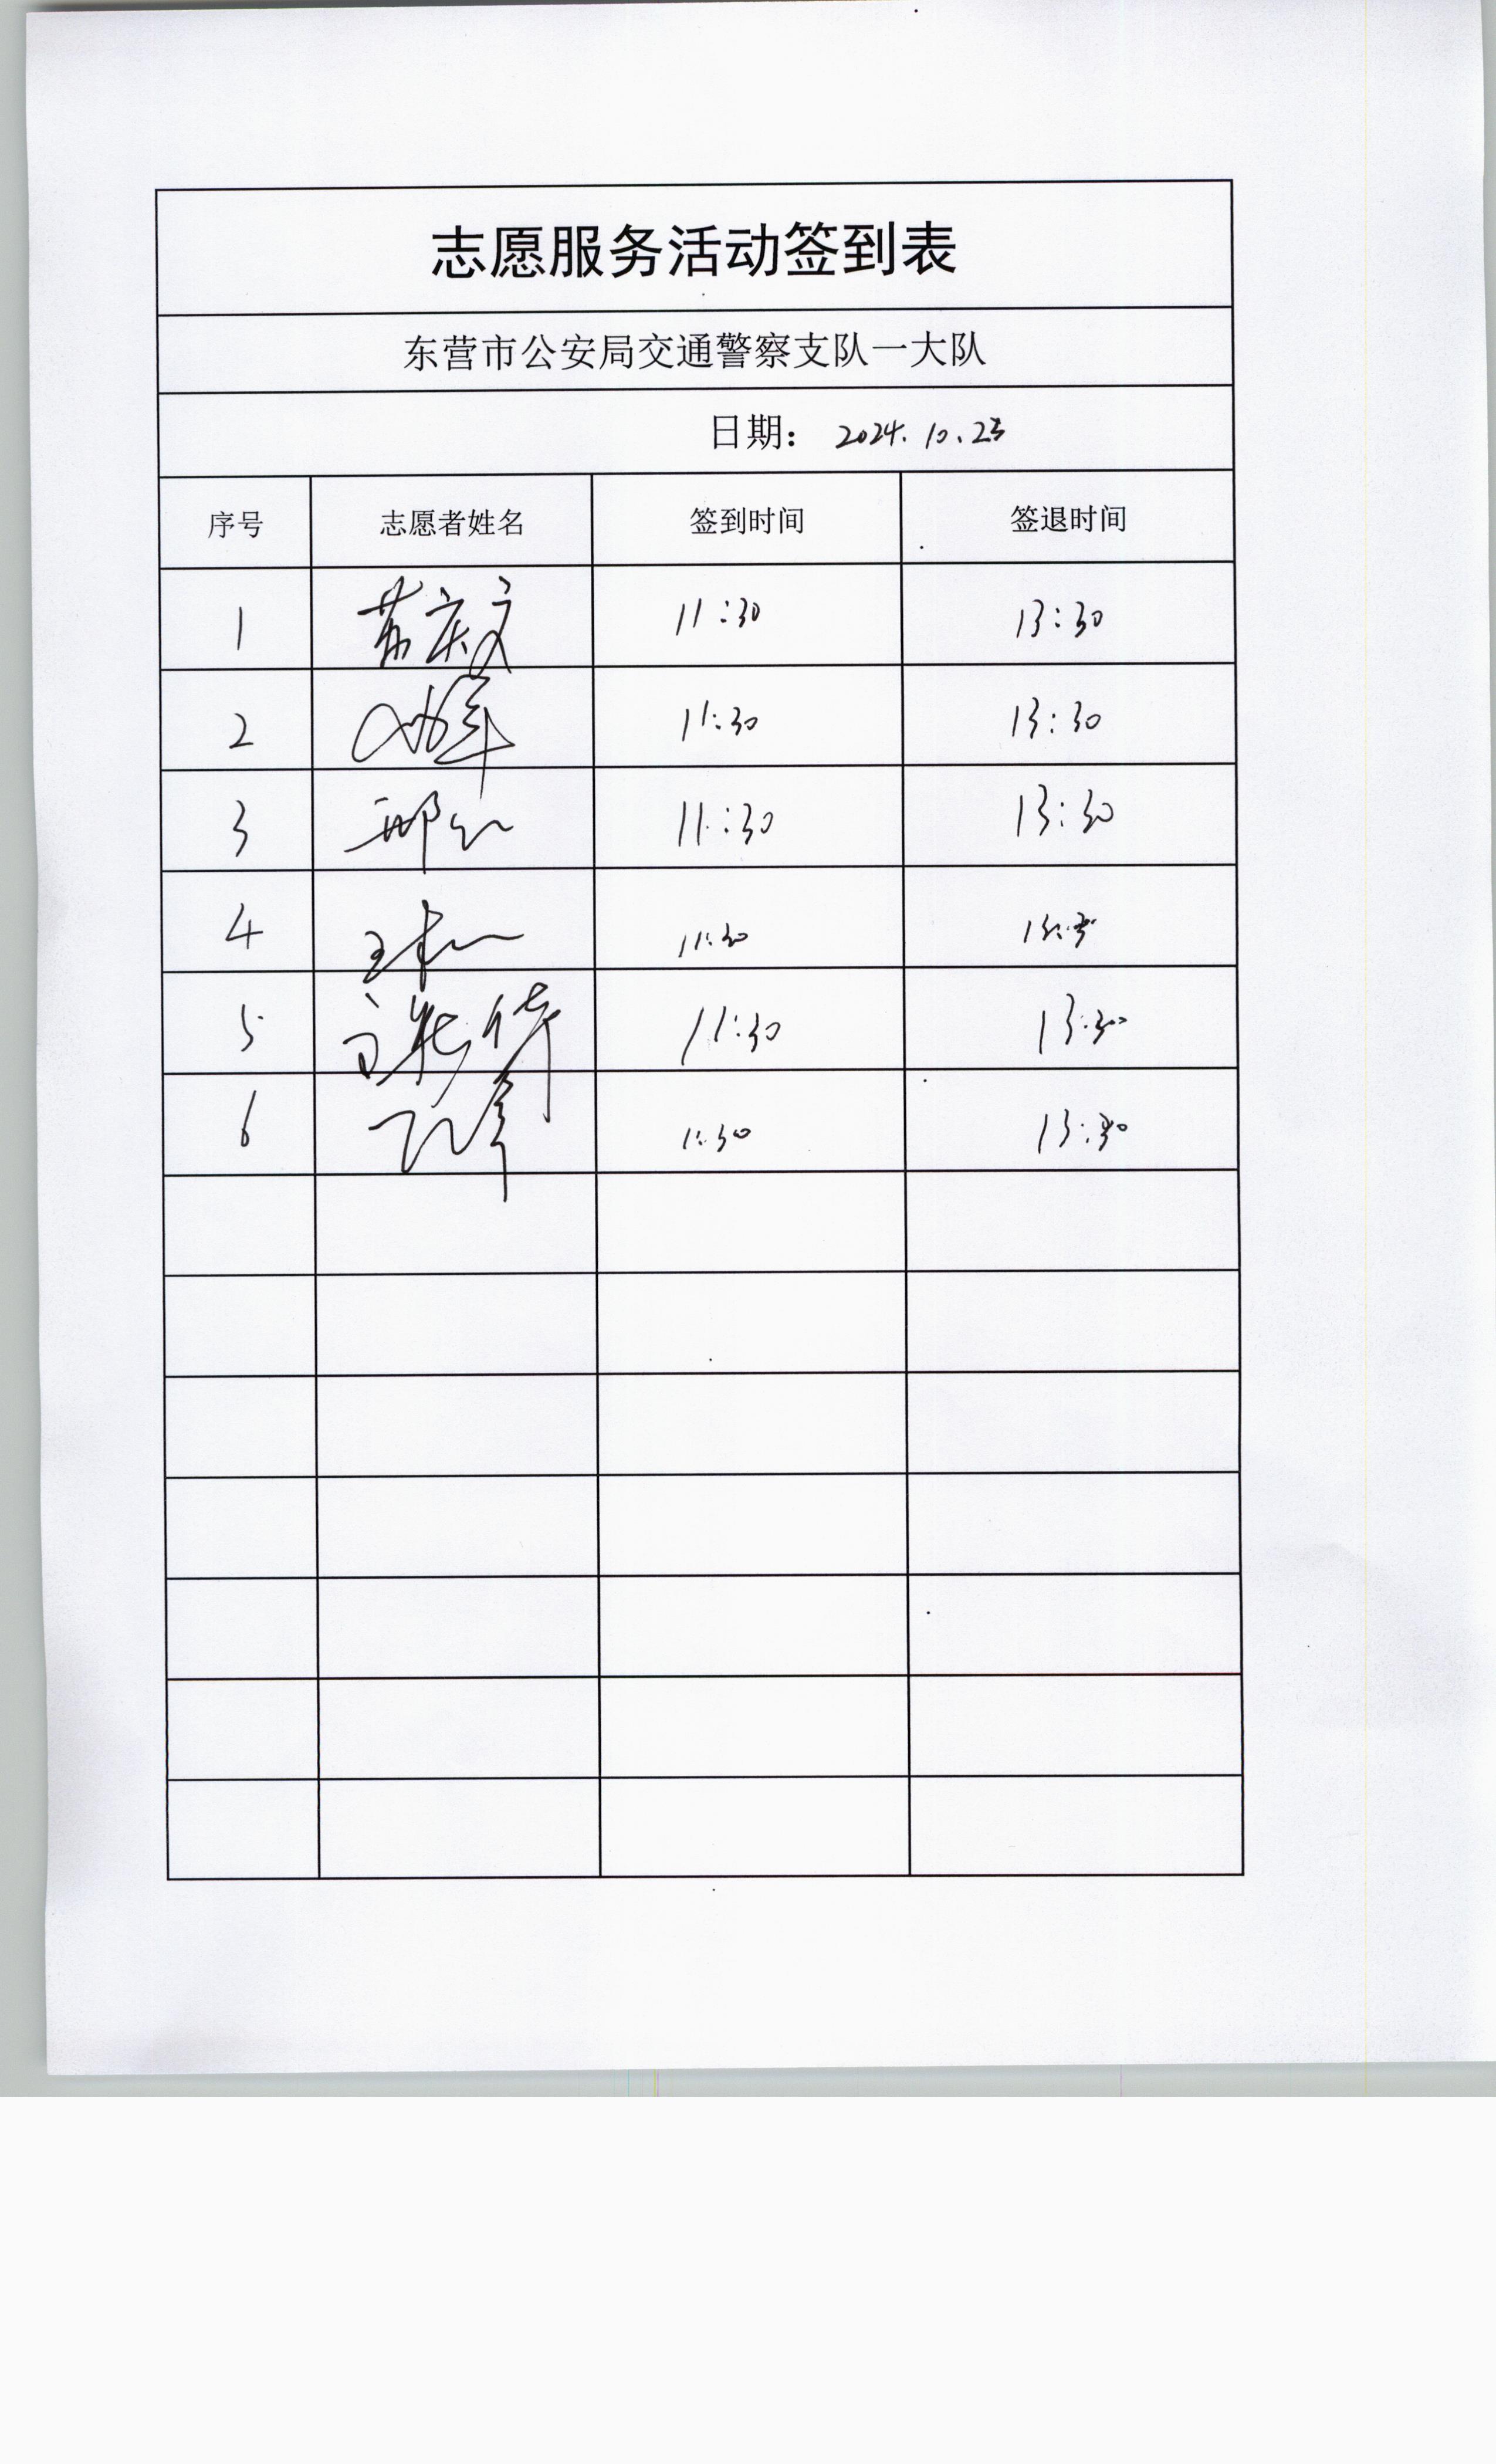 志愿服务活动签到表
东营市公安局交通警察支队一大队
日期： 2024.10.23
序号 志愿者姓名 签到时间 签退时间
1 苏庆文 11:30 13:30
2 11:30 13:30
3 11:30 13:30
4 11:30
5 11:30 13:30
6 11:30 13:30